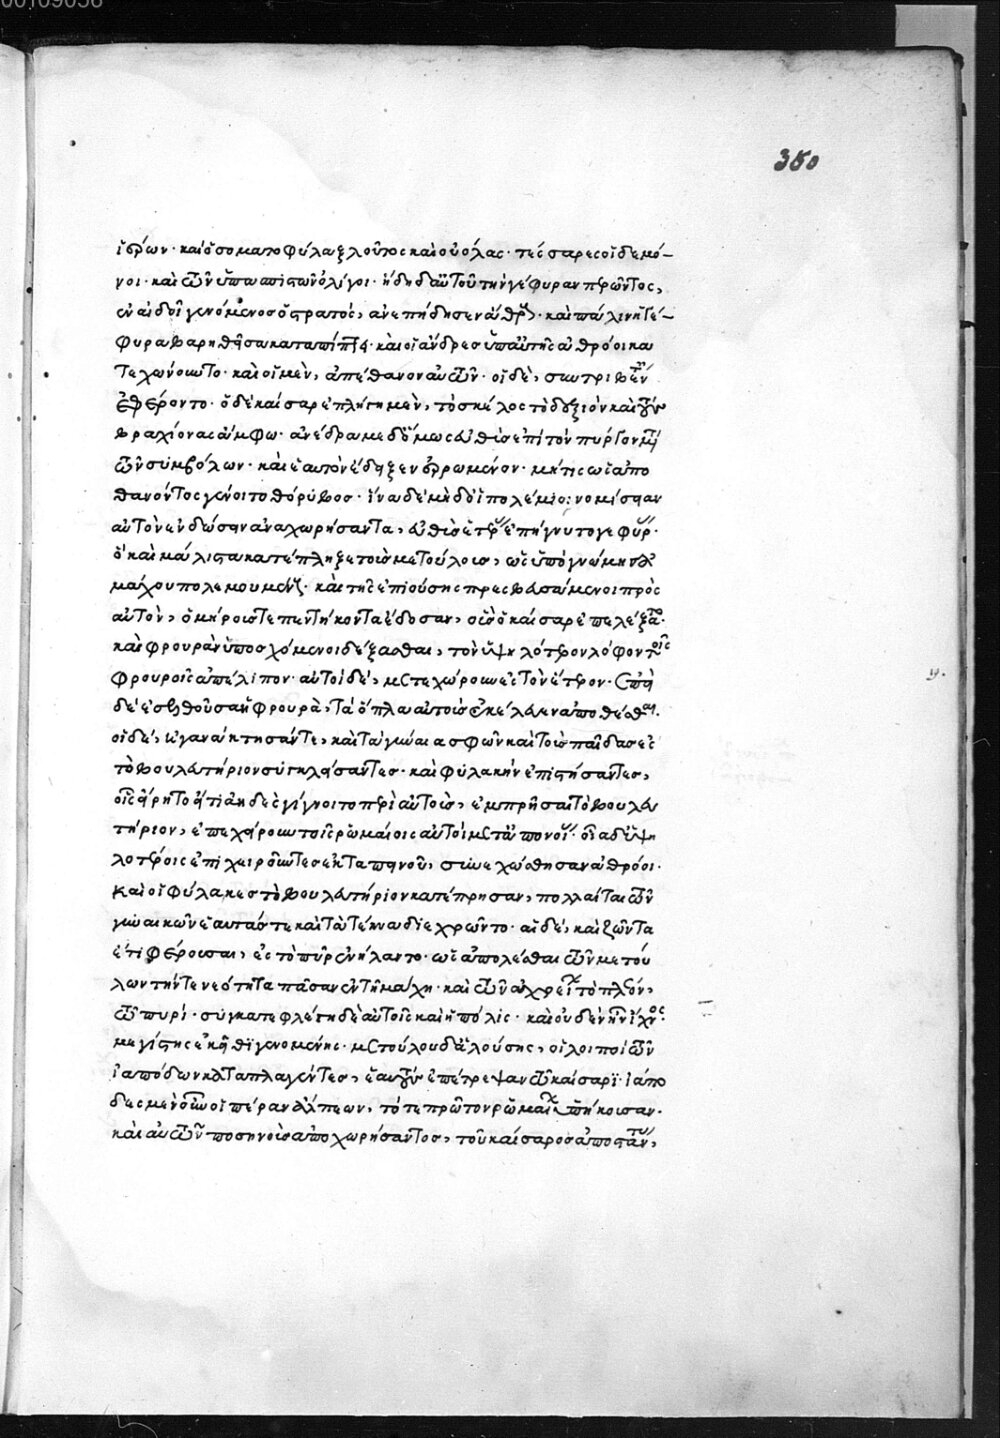 00109056
380
ἱέρων· καὶ ὁ σοματοφύλαξ λοῦτος καὶ οὐόλας· τέσσαρες οἵδε μό-
νοι· καὶ τῶν ὑπασπιστῶν ὀλίγοι· ἤδη δ' αὐτοῦ τὴν γέφυραν περῶντος,
ἐν αἰδοῖ γενόμενος ὁ στρατός, ἀνεπήδησεν ἀθρόως· καὶ πάλιν ἥ τε γέ-
φυρα βαρηθεῖσα καταπίπτει· καὶ οἱ ἄνδρες ὑπ' αὐτῆς ἀθρόοι κα
τεχώννυντο· καὶ οἱ μὲν, ἀπέθανον αὐτῶν· οἱ δὲ, συντριβέντες
ἐφέροντο· ὁ δὲ καίσαρ ἐπλήγη μὲν, τὸ σκέλος τὸ δεξιὸν καὶ τοὺς
βραχίονας ἄμφω· ἀνέδραμε δ' ὅμως εὐθὺς ἐπὶ τὸν πύργον μετὰ
τῶν συμβόλων· καὶ ἑαυτὸν ἔδειξεν ἐρρωμένον· μή τις ὡς ἀπο
θανόντος γένοιτο θόρυβος· ἵνα δὲ μὴ δ' οἱ πολέμιοι νομίσειαν
αὐτὸν ἐνδώσειν ἀναχωρήσαντα, εὐθὺς ἑτέρας ἐπήγνυτο γεφύρας·
ὃ καὶ μάλιστα κατέπληξε τοὺς μετούλους, ὡς ὑπὸ γνώμης ἀ
μάχου πολεμουμένους· καὶ τῆς ἐπιούσης πρεσβευσάμενοι πρὸς
αὐτὸν, ὁμήρους τε πεντήκοντα ἔδοσαν, οὓς ὁ καίσαρ ἐπελέξατο·
καὶ φρουρὰν ὑποσχόμενοι δέξασθαι, τὸν ὑψηλότερον λόφον τοῖς
φρουροῖς ἀπέλιπον· αὐτοὶ δὲ, μετεχώρουν ἐς τὸν ἕτερον· ἐπεὶ
δὲ ἐσελθοῦσα ἡ φρουρὰ, τὰ ὅπλα αὐτοὺς ἐκέλευεν ἀποθέσθαι·
οἱ δὲ, ἠγανάκτησάν τε, καὶ τὰ γύναια σφῶν καὶ τοὺς παῖδας ἐς
τὸ βουλευτήριον συγκλείσαντες· καὶ φυλακὴν ἐπιστήσαντες,
οἷς εἴρητο εἴ τι ἀηδὲς γίγνοιτο περὶ αὐτοὺς, ἐμπρῆσαι τὸ βουλευ
τήριον, ἐπεχείρουν τοῖς ῥωμαίοις αὐτοὶ μετὰ ἀπονοίας· οἷα δ' ὑψη
λοτέροις ἐπιχειροῦντες ἐκ ταπεινοῦ, συνεχώσθησαν ἀθρόοι·
καὶ οἱ φύλακες τὸ βουλευτήριον κατέπρησαν, πολλαί τε τῶν
γυναικῶν ἑαυτάς τε καὶ τὰ τέκνα διεχρῶντο· αἱ δὲ, καὶ ζῶντα
ἔτι φέρουσαι, ἐς τὸ πῦρ ἐνήλαντο· ὡς ἀπολέσθαι τῶν μετού
λων τήν τε νεότητα πᾶσαν ἐν τῇ μάχῃ· καὶ τῶν ἀχρείων τὸ πλέον,
τῷ πυρί· συγκατεφλέγη δὲ αὐτοῖς καὶ ἡ πόλις· καὶ οὐδὲν ἦν ἴχνος·
μεγίστης ἐκεῖ δὴ γενομένης· μετούλου δ' ἁλούσης, οἱ λοιποὶ τῶν
ἰαπόδων καταπλαγέντες, ἑαυτοὺς ἐπέτρεψαν τῷ καίσαρι· ἰάπο
δες μὲν οὖν οἱ πέραν ἄλπεων, τότε πρῶτον ῥωμαίων ὑπήκουσαν·
καὶ αὐτῶν ποσηνοὺς ἀποχωρήσαντος, τοῦ καίσαρος ἀποστάντας,